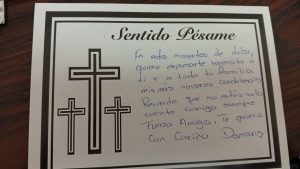 Sentido Pésame
En estos momentos de dolor,
quiero expresarte haciendo a
ti y a toda tu familia,
mis más sinceras condolencias
Recuerda que no estás sola
cuenta conmigo siempre.
Fuerza Amiga, Te quiero
Con Cariño Damaris